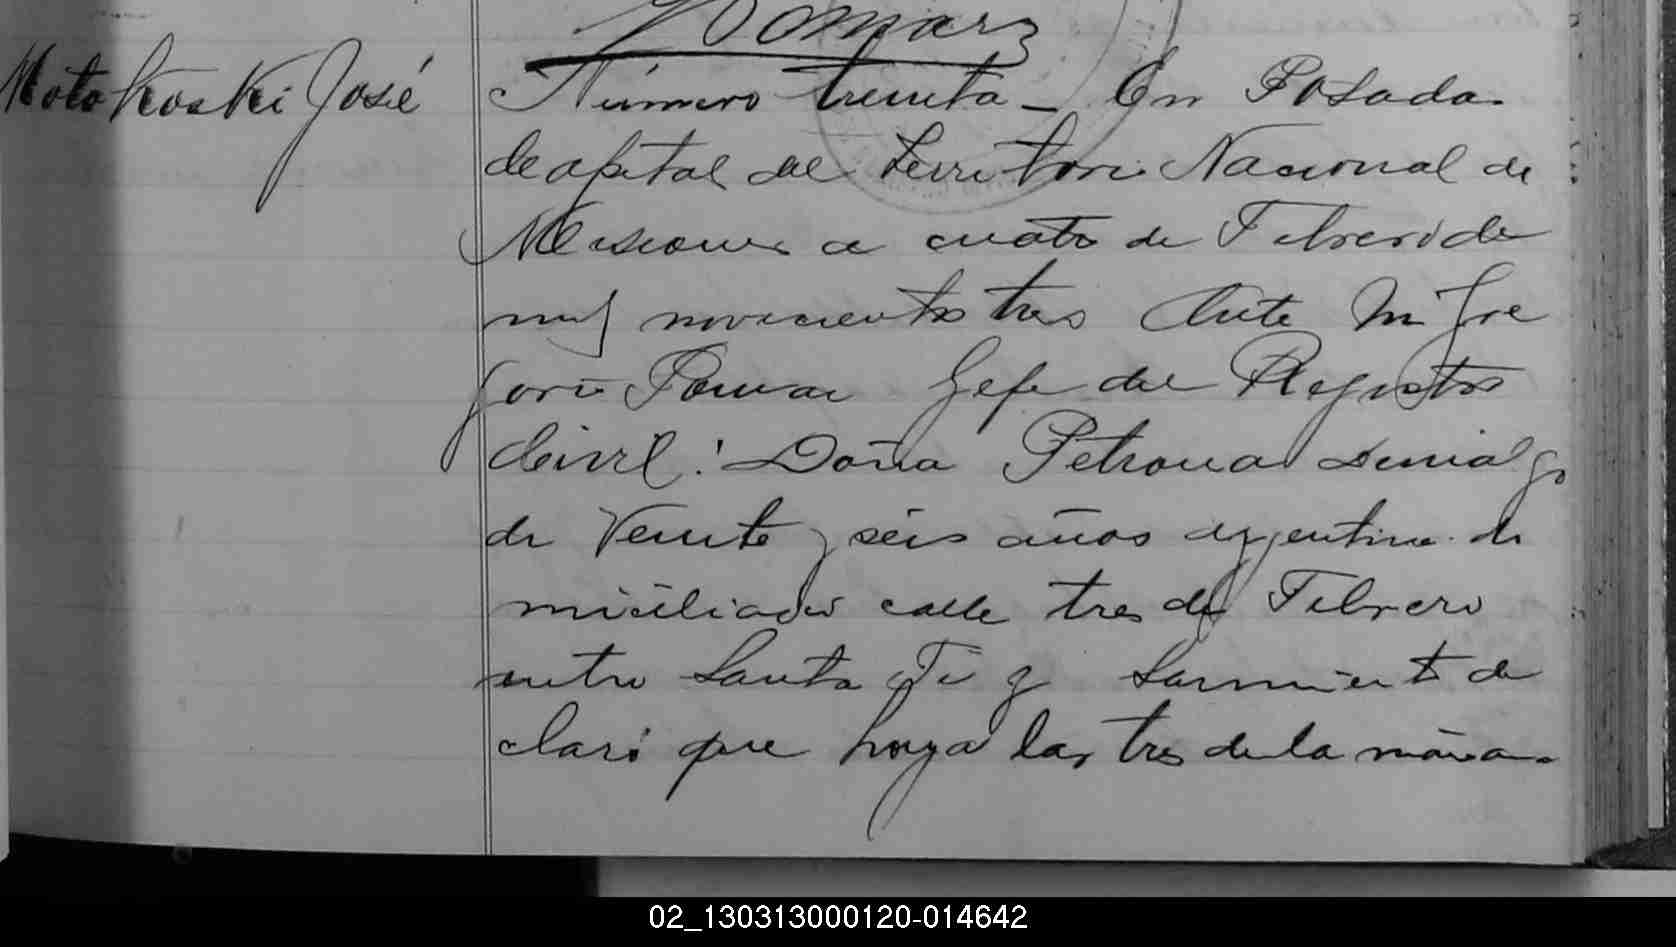 Pomar
Motokoski José
Número treinta - En Posadas
Capital del Territorio Nacional de
Misiones a cuatro de Febrero de
mil novecientos tres Ante mi Gre
gorio Pomar Gefe del Registro
Civil: Doña Petrona
de Veinte y seis años argentina do
miciliada calle tres de Febrero
entre Santa Fé y Sarmiento de
claró que hoy a las tres de la mañana
02_130313000120-014642